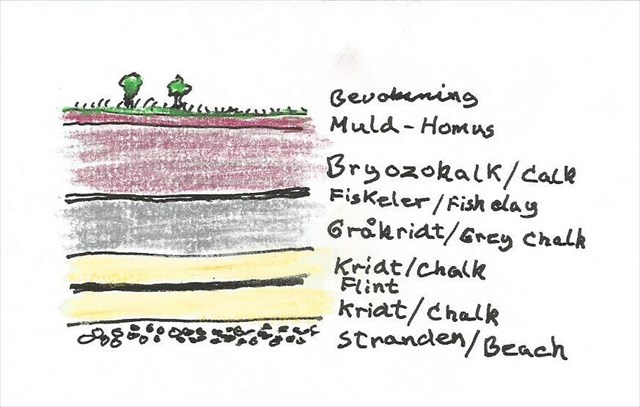 Bevoksning
Muld-Homus
Bryozokalk/Calk
Fiskeler/Fishclay
Gråkridt/Grey Chalk
Kridt/Chalk
Flint
Kridt/Chalk
Stranden/Beach